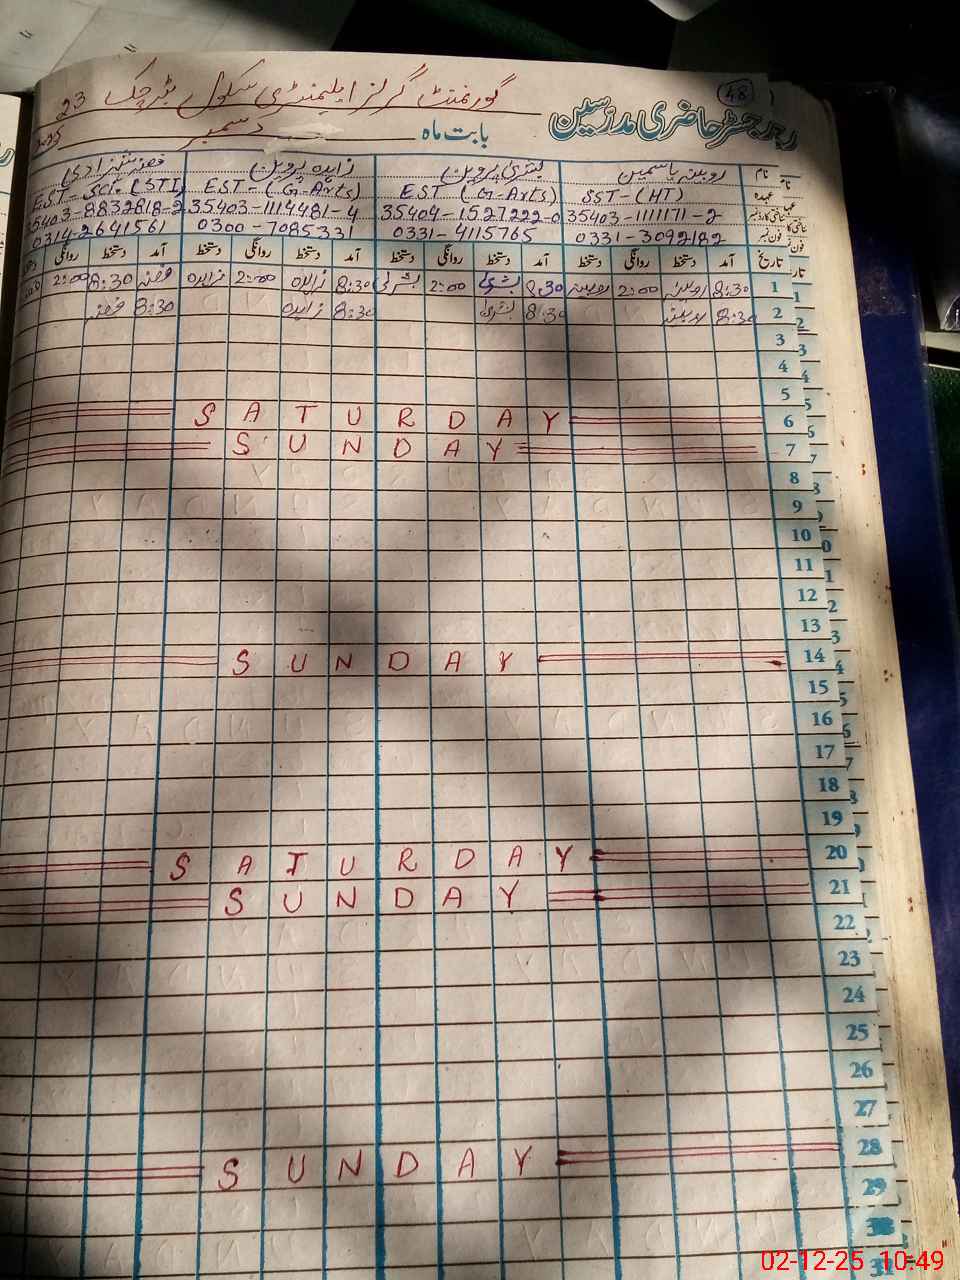 48
گورنمنٹ گرلز ایلیمنٹری سکول چک 23
رجسٹر حاضری مدرسین
بابت ماہ دسمبر
نام روبینہ یاسمین بشریٰ پروین زاہدہ پروین شہزادی
عہدہ SST-(HT) EST (G-Arts) EST-(G-Arts) EST-Sci-(STI)
35403-1111171-2 35404-1527222-0 35403-1114481-4 35403-8832818-2
فون نمبر 0331-3092182 0331-4115765 0300-7085331 0314-2641561
تاریخ آمد دستخط روانگی دستخط آمد دستخط روانگی دستخط آمد دستخط روانگی دستخط آمد دستخط روانگی
1 8:30 روبینہ 2:00 روبینہ 8:30 بشریٰ 2:00 بشریٰ 8:30 زاہدہ 2:00 زاہدہ 8:30 2:00
2 8:30 روبینہ 8:30 بشریٰ 8:30 زاہدہ 8:30
3
4
5
6 SATURDAY
7 SUNDAY
8
9
10
11
12
13
14 SUNDAY
15
16
17
18
19
20 SATURDAY
21 SUNDAY
22
23
24
25
26
27
28 SUNDAY
29
30
31
02-12-25 10:49